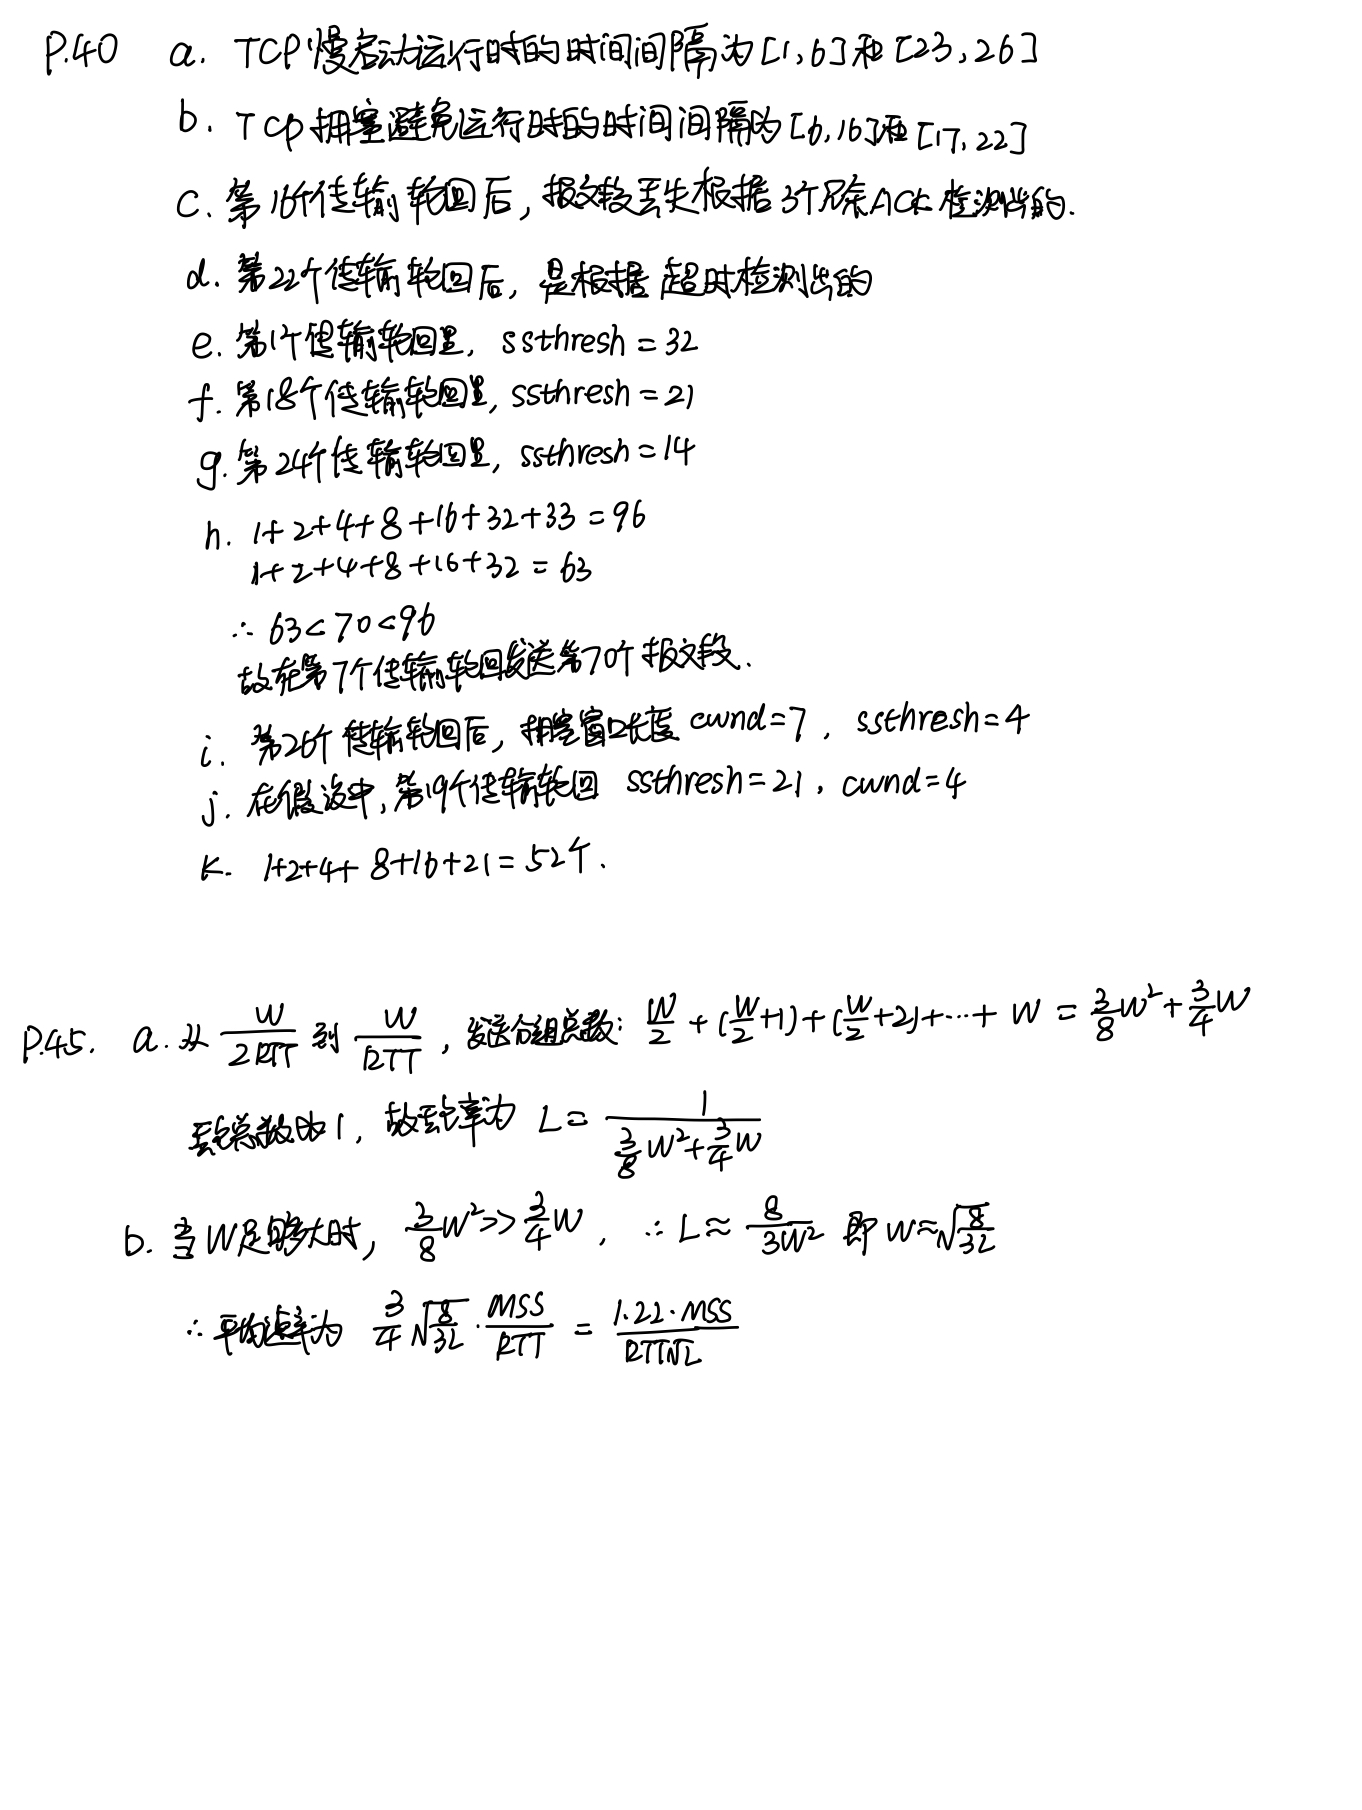 P.40 a. TCP慢启动运行时的时间间隔为[1,6]和[23,26]
b. TCP拥塞避免运行时的时间间隔为[6,16]和[17,22]
c. 第16个传输轮回后, 报文段丢失根据3个冗余ACK检测出的.
d. 第22个传输轮回后, 是根据超时检测出的
e. 第1个传输轮回里, ssthresh=32
f. 第18个传输轮回里, ssthresh=21
g. 第24个传输轮回里, ssthresh=14
h. 1+2+4+8+16+32+33=96
1+2+4+8+16+32=63
∴ 63<70<96
故在第7个传输轮回发送第70个报文段.
i. 第26个传输轮回后, 拥塞窗口长度 cwnd=7, ssthresh=4
j. 在假设中, 第19个传输轮回 ssthresh=21, cwnd=4
k. 1+2+4+8+16+21=52个.
P.45. a. 从 W/2RTT 到 W/RTT, 发送分组总数: W/2+(W/2+1)+(W/2+2)+···+W=3/8W²+3/4W
丢包总数为1, 故丢包率为 L=1/(3/8W²+3/4W)
b. 当W足够大时, 3/8W²>>3/4W, ∴L≈8/3W² 即 W≈√(8/3L)
∴平均速率为 3/4√(8/3L)·MSS/RTT=1.22·MSS/RTT√L